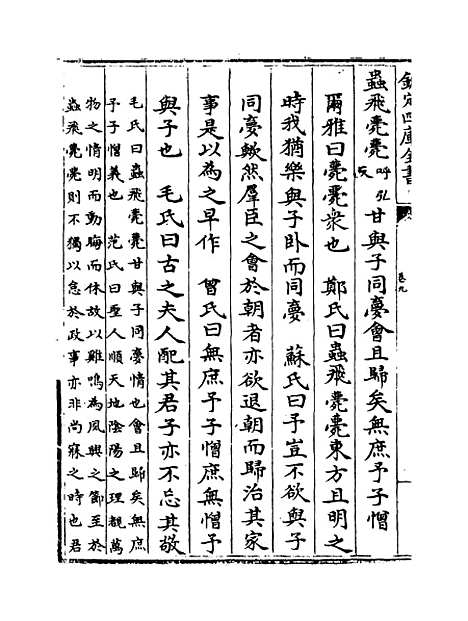 欽定四庫全書
卷九
蟲飛薨薨呼弘反甘與子同夢會且歸矣無庶予子憎
爾雅曰薨薨衆也　鄭氏曰蟲飛薨薨東方且明之
時我猶樂與子卧而同夢　蘇氏曰予豈不欲與子
同夢歟然羣臣之會於朝者亦欲退朝而歸治其家
事是以為之早作　曾氏曰無庶予子憎庶無憎予
與子也　毛氏曰古之夫人配其君子亦不忘其敬
毛氏曰蟲飛薨薨甘與子同夢情也會且歸矣無庶
予子憎義也　范氏曰聖人順天地陰陽之理觀萬
物之情明而動晦而休故以雞鳴為夙興之節至於
蟲飛薨薨則不獨以怠於政事亦非尚寐之時也君